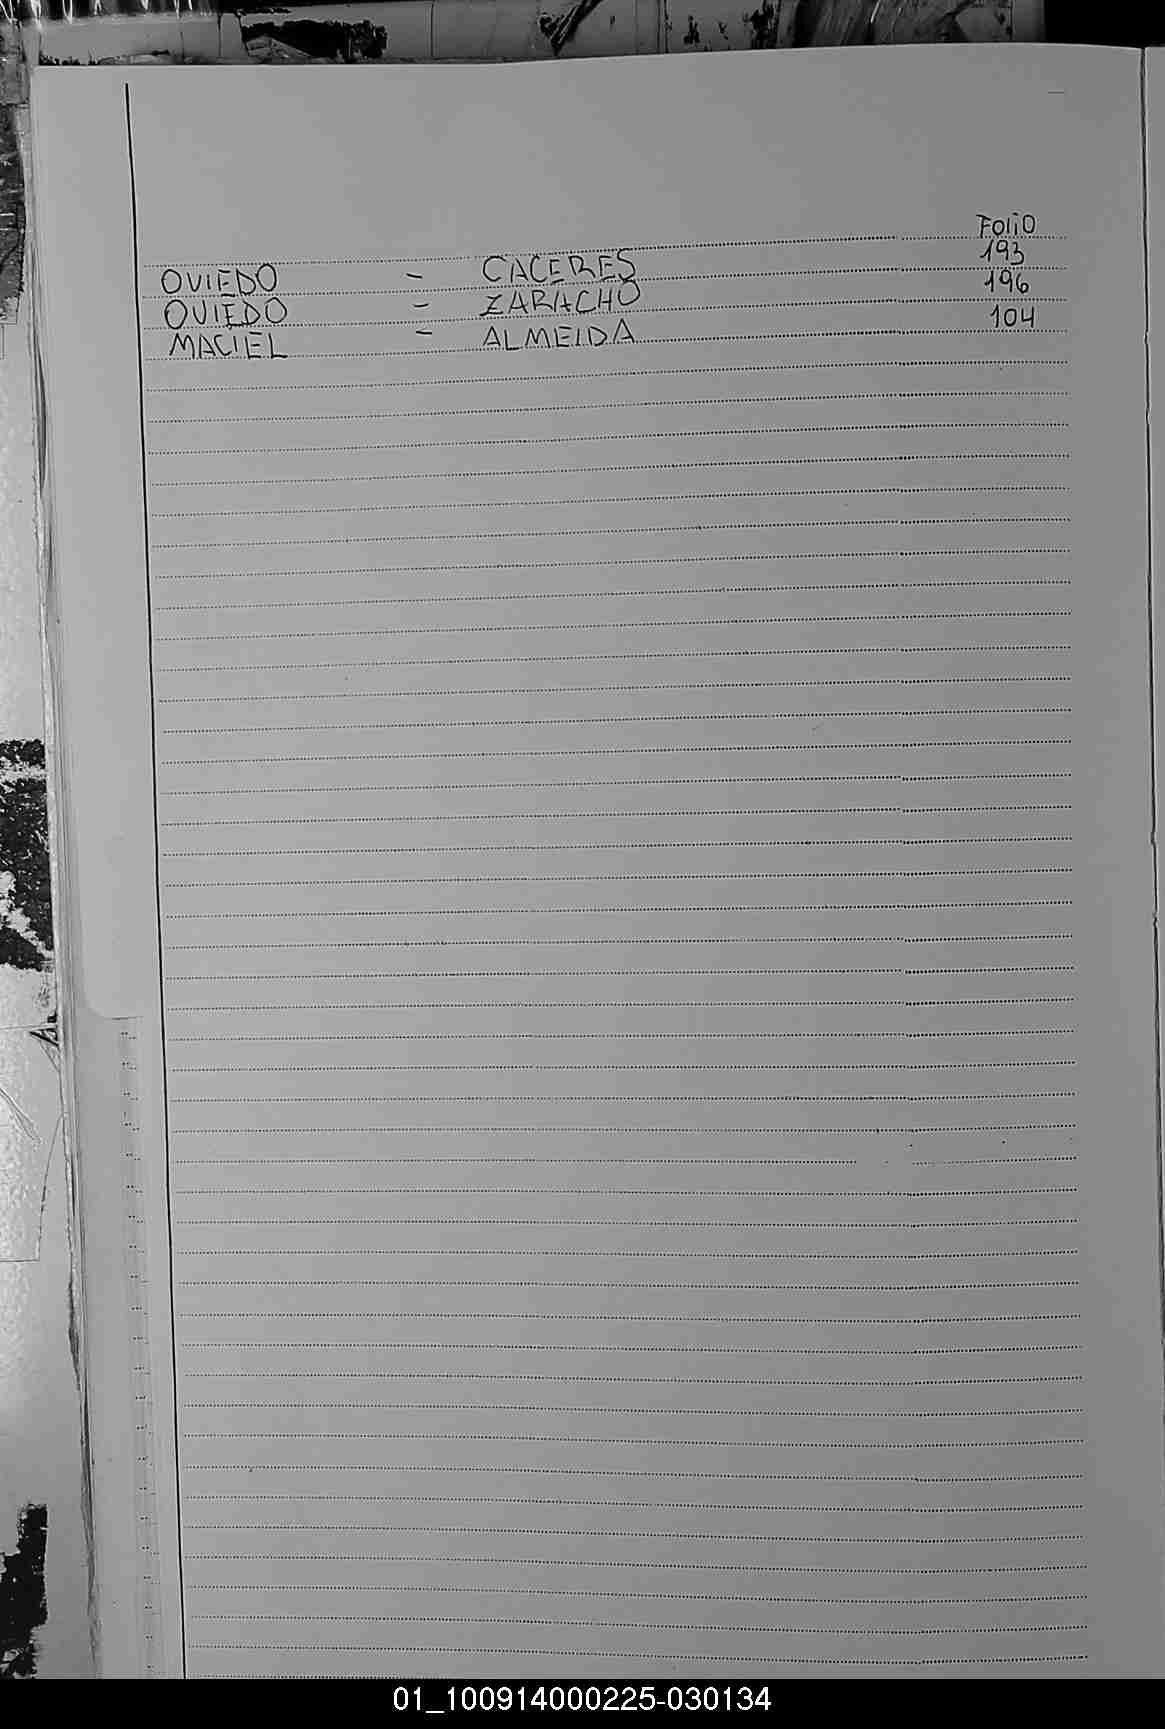 FOLIO
OVIEDO - CACERES 193
OVIEDO - ZARACHO 196
MACIEL - ALMEIDA 104
01_100914000225-030134